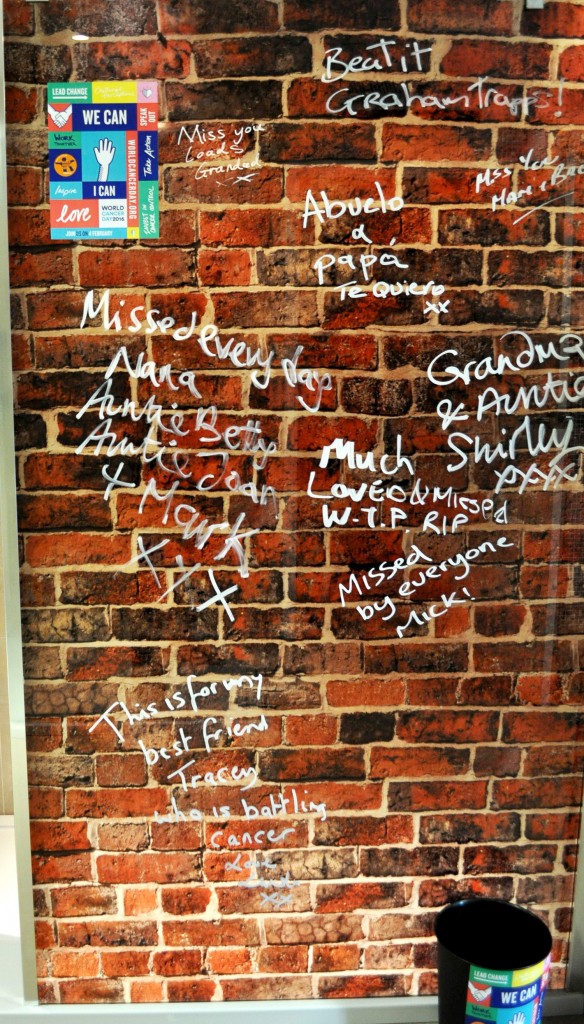 LEAD CHANGE
SPEAK OUT
WE CAN
WORK TOGETHER
Take Action
WORLDCANCERDAY.ORG
Inspire
I CAN
INVEST IN CANCER CONTROL
love
WORLD CANCER DAY 2016
JOIN US ON 4 FEBRUARY
Beat it
Graham Trapps!
Miss you
Loads
Grandad
x
Miss You
Abuelo
a
papá
Te Quiero
xx
Missed every day
Nana
Auntie Betty
Auntie Joan
+ Mark
X X X
Grandma
& Auntie
Shirley
XXXX
Much
LOVED & Missed
W.T.P RIP
Missed
by everyone
MICK!
This is for my
best friend
Tracey
who is battling
cancer
Love
xx
LEAD CHANGE
WE CAN
WORK